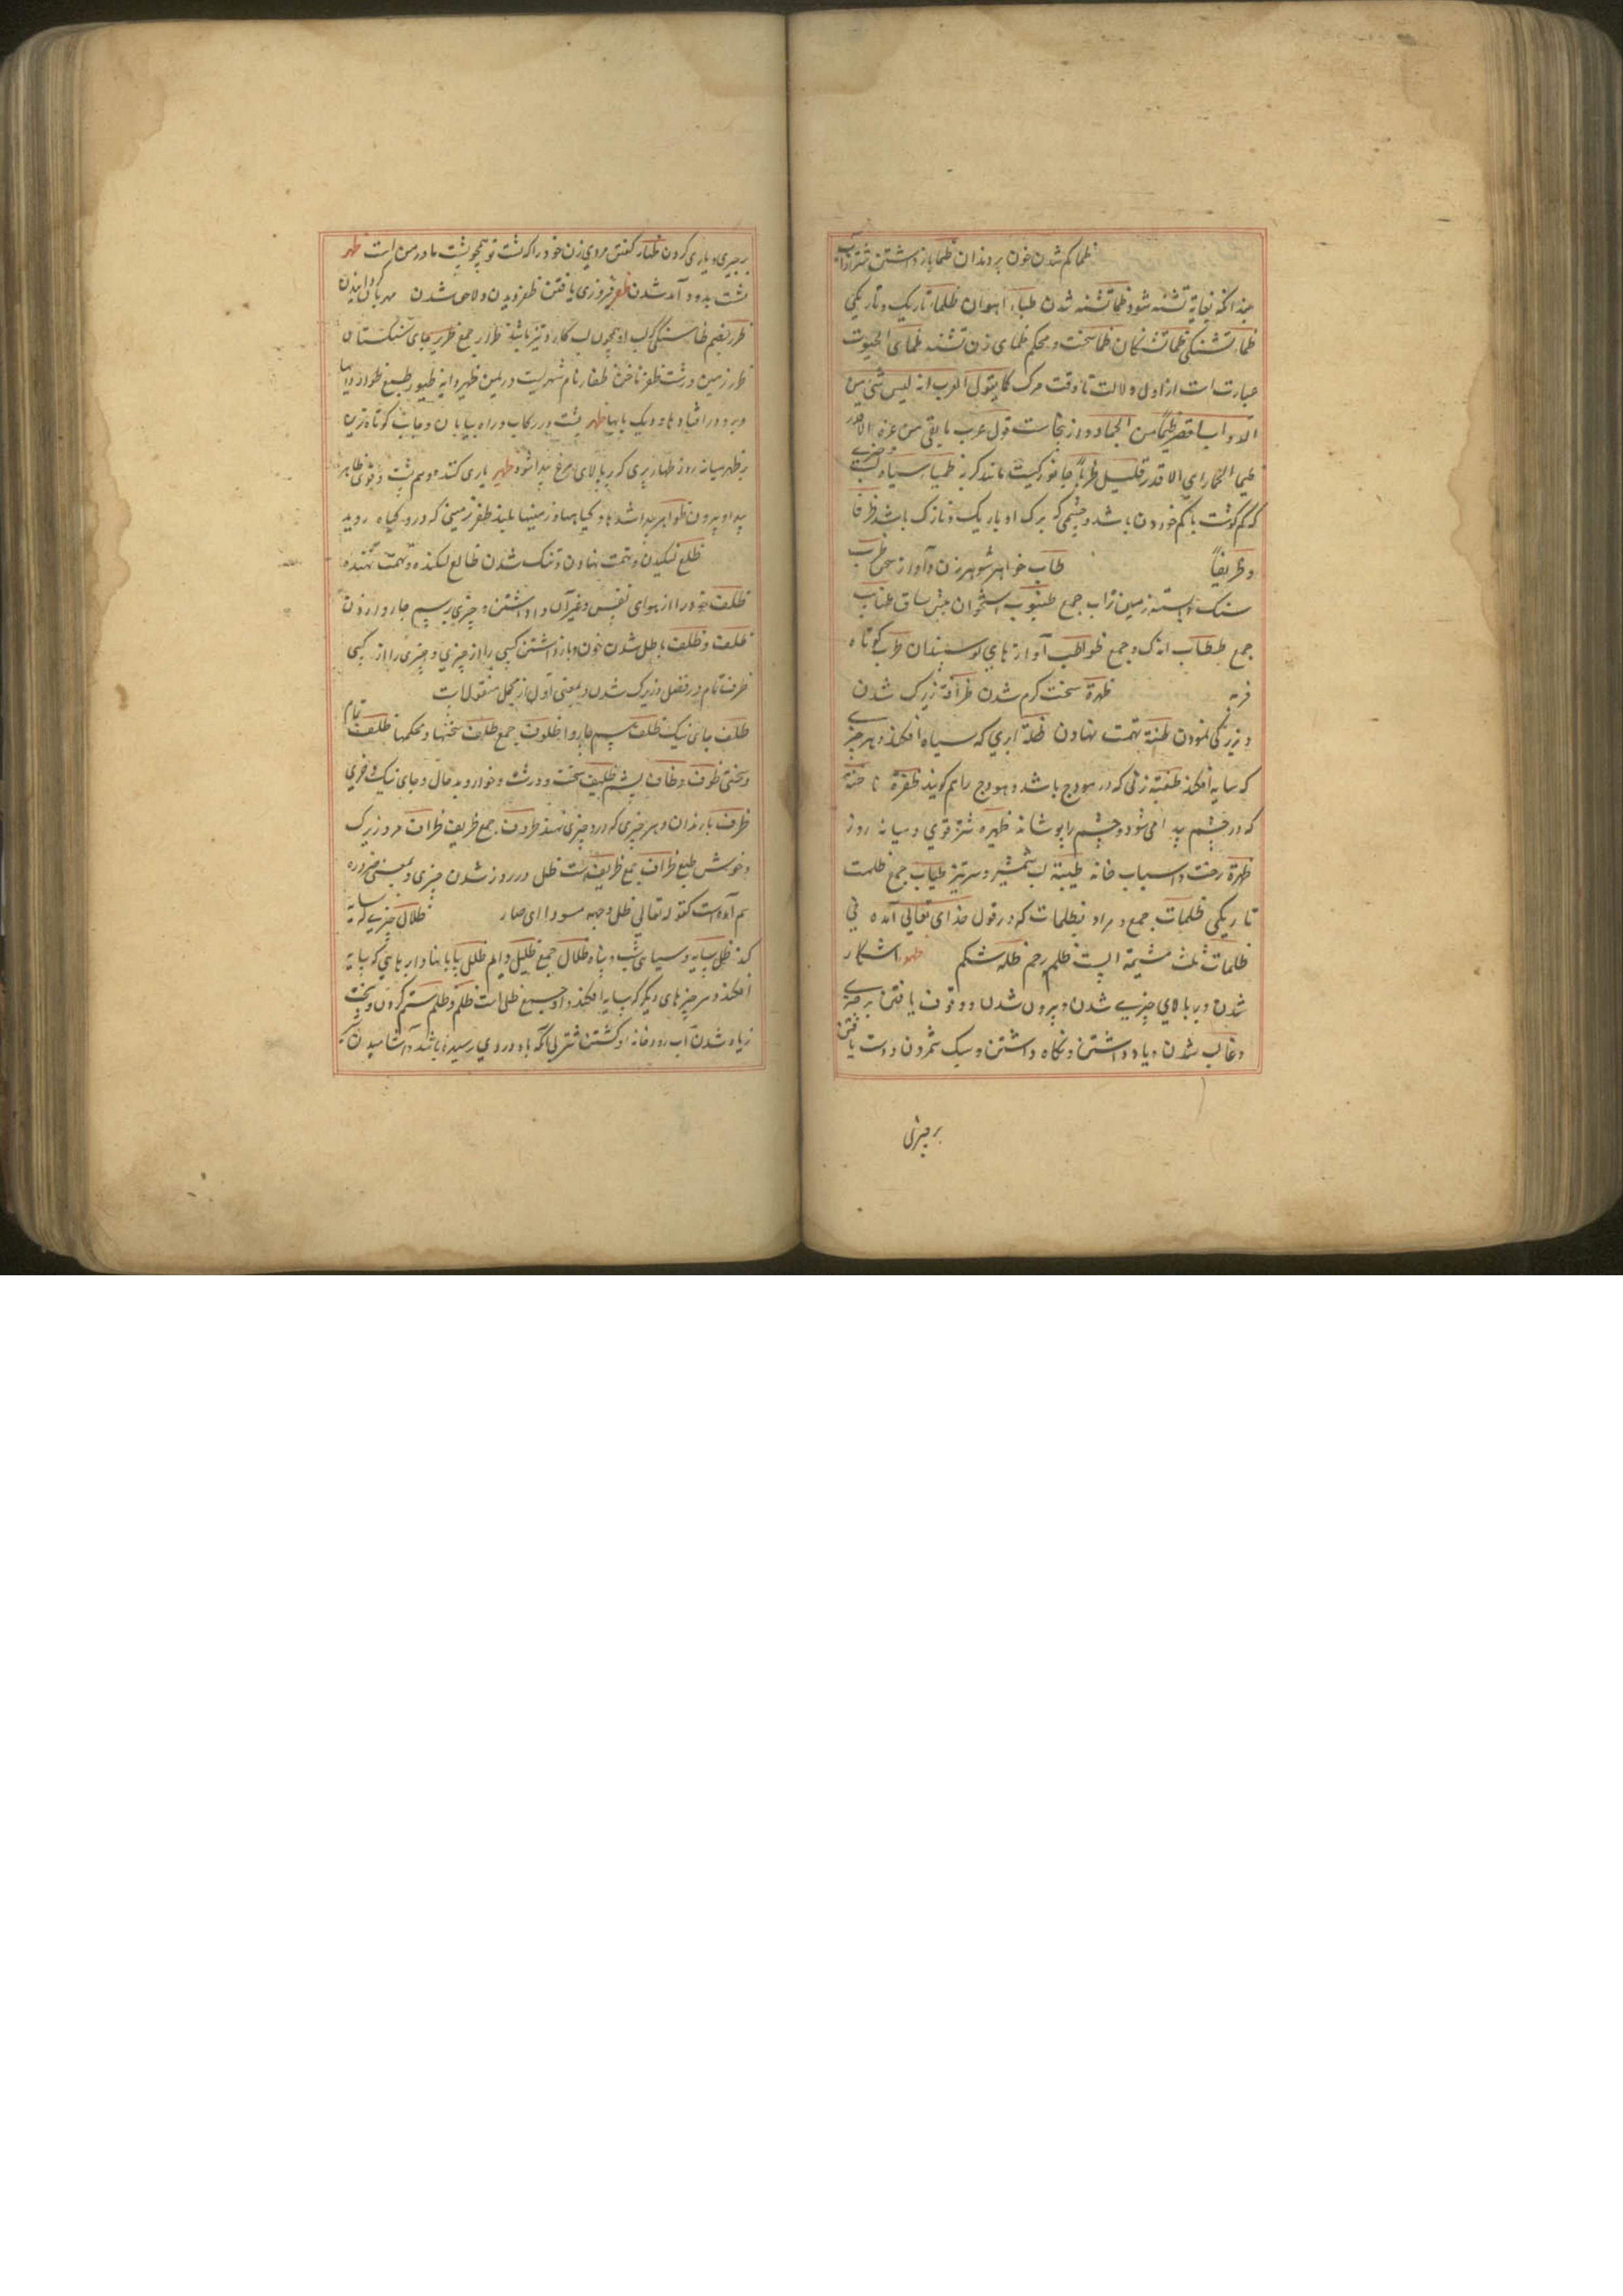 ظما کم شدن خون بر دندان ظما باز داشتن شتر از آب
چندانکه بغایة تشنه شود ظما تشنه شدن ظباء آهوان ظلماء تاریک و تاریکی
ظماء تشنکی ظما تشنکان ظما سخت و محکم ظمای زن تشنه ظمای الحیوت
عبارت است از اول ولادت تا وقت مرک کما یقول العرب انه لیس شئ من
الدواب اقصر ظمئا من الحمار و از نجاست قول عرب ما بقی من عمره الا قدر
ظمئ الحمار ای الا قدر قلیل ظربا جانورکیست مانند کربه ظمیاء سیاه لب
که کم کوشت یا کم خون باشد و چشمی که برک او باریک و نازک باشد ظرفا
و ظریفا ظاب خواهر شوهر زن و آواز سخن ظرب
سنک و پشته زمین ظراب جمع ظنبوب استخوان پیش ساق ظنابیب
جمع ظبظاب اندک و جمع ظواظب آوازهای کوسبندان ظرب کوتاه
فربه ظهرة سخت کرم شدن ظرافة زیرک شدن
و زیرکی نمودن ظنة تهمت نهادن ظلة ابری که سیاه افکند و هر چیزی
که سایه افکند ظعینة زنی که در هودج باشد و هودج را هم کویند ظفرة ناخنه
که در چشم پیدا می شود و چشم را پوشاند ظهیره شتر قوی و میانه روز
ظهرة رخت و اسباب خانه ظبة لب شمشیر و سر تیز ظباب جمع ظلمت
تاریکی ظلمات جمع و مراد بظلمات که در قول خدای تعالی آمده فی
ظلمات ثلث مشیمة است ظلم رحم ظله شکم ظهور اشکار
شدن و بر بالای چیزے شدن و بیرون شدن و وقوف یافتن بر چیزے
و غالب شدن و یاد داشتن و نکاه داشتن و سبک شمردن و دست یافتن
بر چیزی
بر چیزی و یاری کردن ظهار کفتن مردی زن خود را که پشت تو همچو پشت مادر من است ظهر
پشت بدرد آمدن شدن ظفر فیروزی یافتن ظفر دیدن و لاحق شدن مهربان کردانیدن
ظرر بضم ظا سنکی که لب او همچون لب کارد تیز باشد ظرار جمع ظریر جای سنکستان
ظرر زمین درشت ظفر ناخن ظفار نام شهریست در یمن
و برو در افتاده و دیک پایها ظهر پشت در رکاب و راه بیابان و جانب کوتاه ترین
پر ظهر میانه روز ظهار پری که بر بالای مرغ پیدا شود ظهیر یاری کننده و هم پشت و قوی ظاهر
پیدا و بیرون ظواهر پیدا شدها و کیاهها و زمینها بلند ظفر زمینی که درو کیاه روید
ظلع لنکیدن و تهمت نهادن و تنک شدن ظالع لنکنده و تهمت نهنده
ظلف خود را از هوای نفس و غیر آن وا داشتن و چیزی بر سم چاروا زدن
ظلف و ظلف باطل شدن خون و باز داشتن کسی را از چیزی و چیزی را از کسی
ظرف تمام در فضل و زیرک شدن و بمعنی اول از مجمل منقول است
ظلف جای نیک ظلف سم چاروا ظلوف جمع ظلف سختها و محکمها ظلف تمام
و سختی ظوف و ظاف پشم ظلیف سخت و درشت و خوار و بد حال و جای نیک و خری
ظرف باردان و هر چیزی که درو چیزی نهند ظروف جمع ظریف ظراف مرد زیرک
و خوش طبع ظراف جمع ظریفست ظل در روز شدن چیزی و بمعنی صیروره
هم آمده است کقوله تعالی ظل وجهه مسودا ای صار ظلال چیزے که سایه
کند ظل سایه و سیاهی شب و پناه ظلال جمع ظلیل دایم ظلل سایبانها و ابرهای که سایه
افکند و هر چیزهای دیکر که سایه افکند و او جمع ظل است ظلم و ظلم ستم کردن و
زیاده شدن آب رودخانه و کشتن شتر بی انکه باو دردی رسیده باشد و آشامیدن